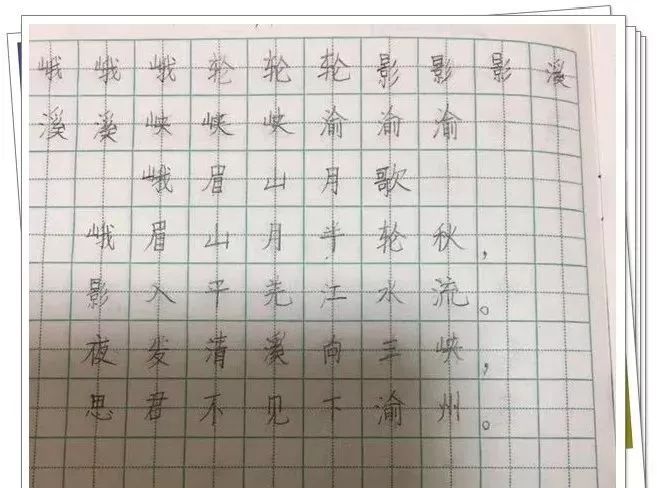 峨峨峨轮轮轮影影影溪
溪溪峡峡峡渝渝渝
峨眉山月歌
峨眉山月半轮秋，
影入平羌江水流。
夜发清溪向三峡，
思君不见下渝州。